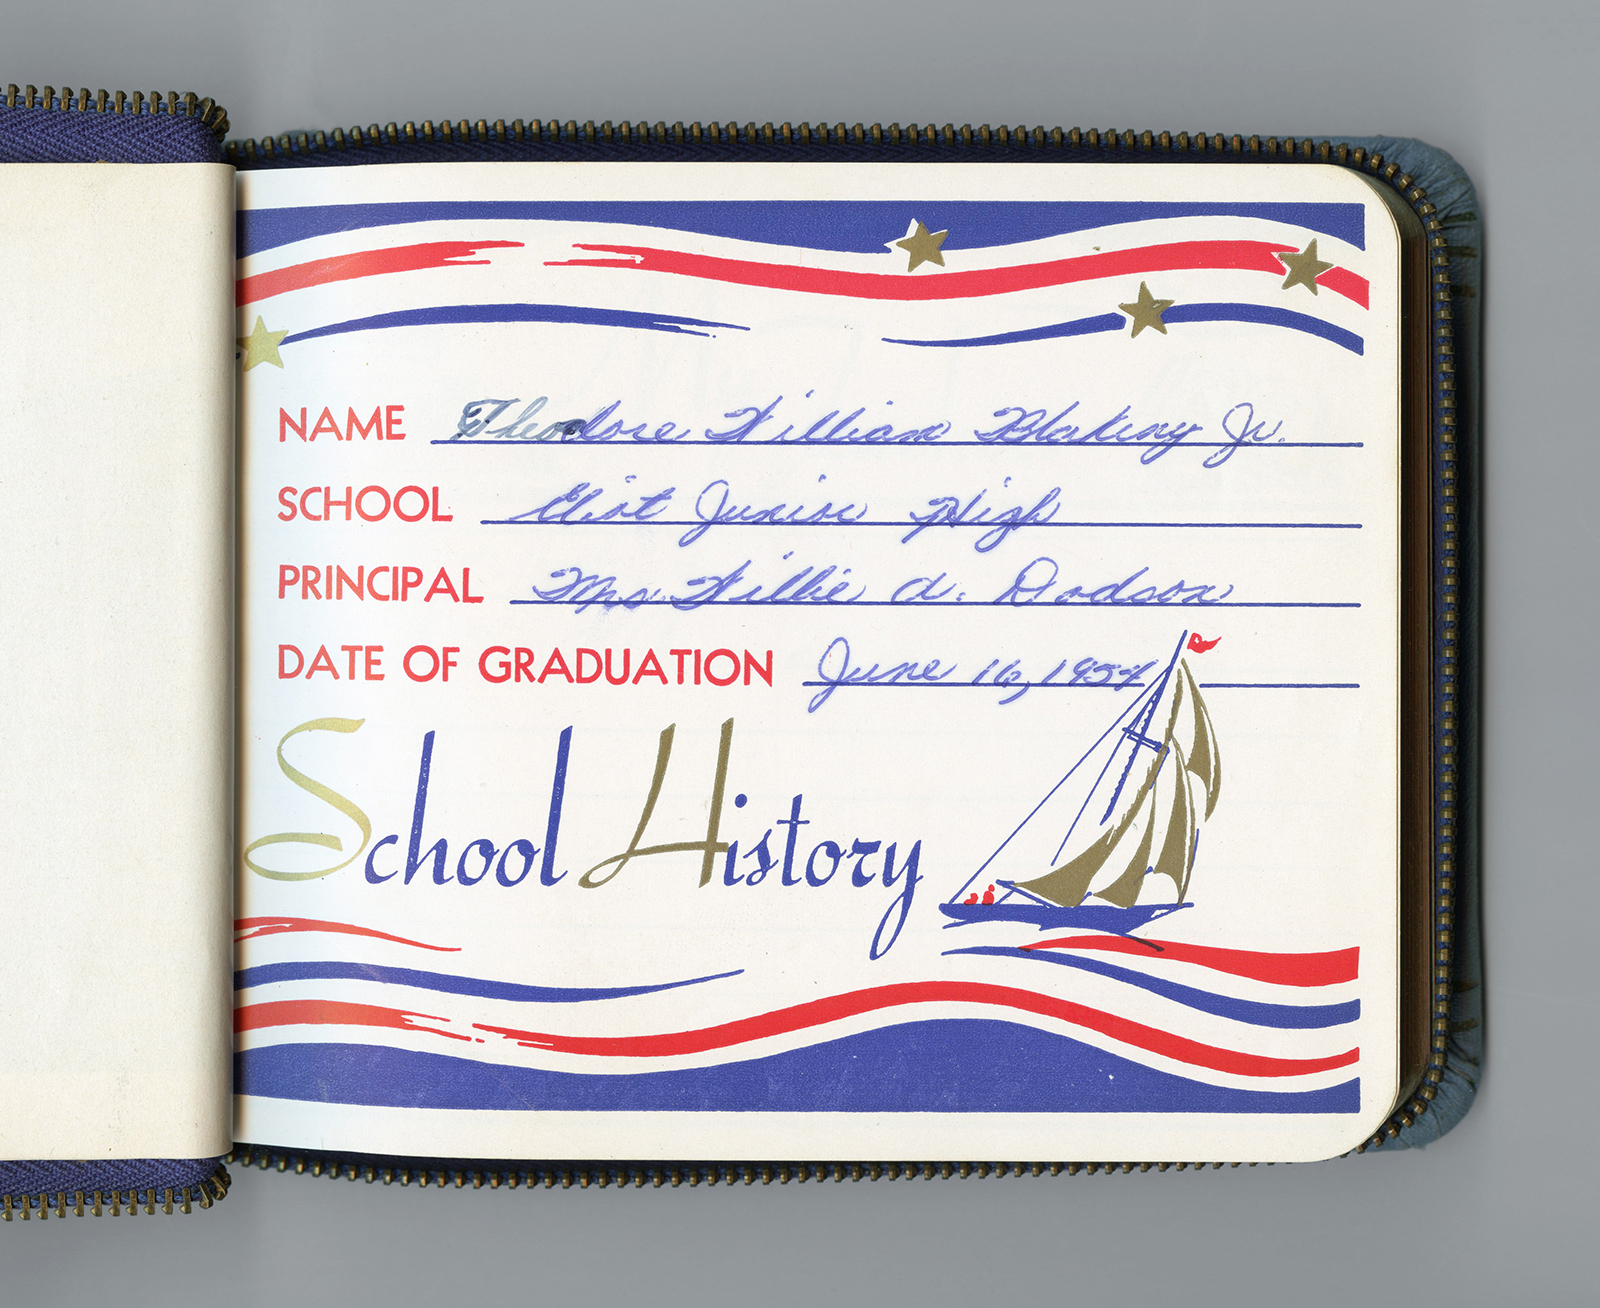 NAME Theodore William Blakeny Jr.
SCHOOL Eliot Junior High
PRINCIPAL Mrs. Willie A. Dodson
DATE OF GRADUATION June 16, 1954
School History